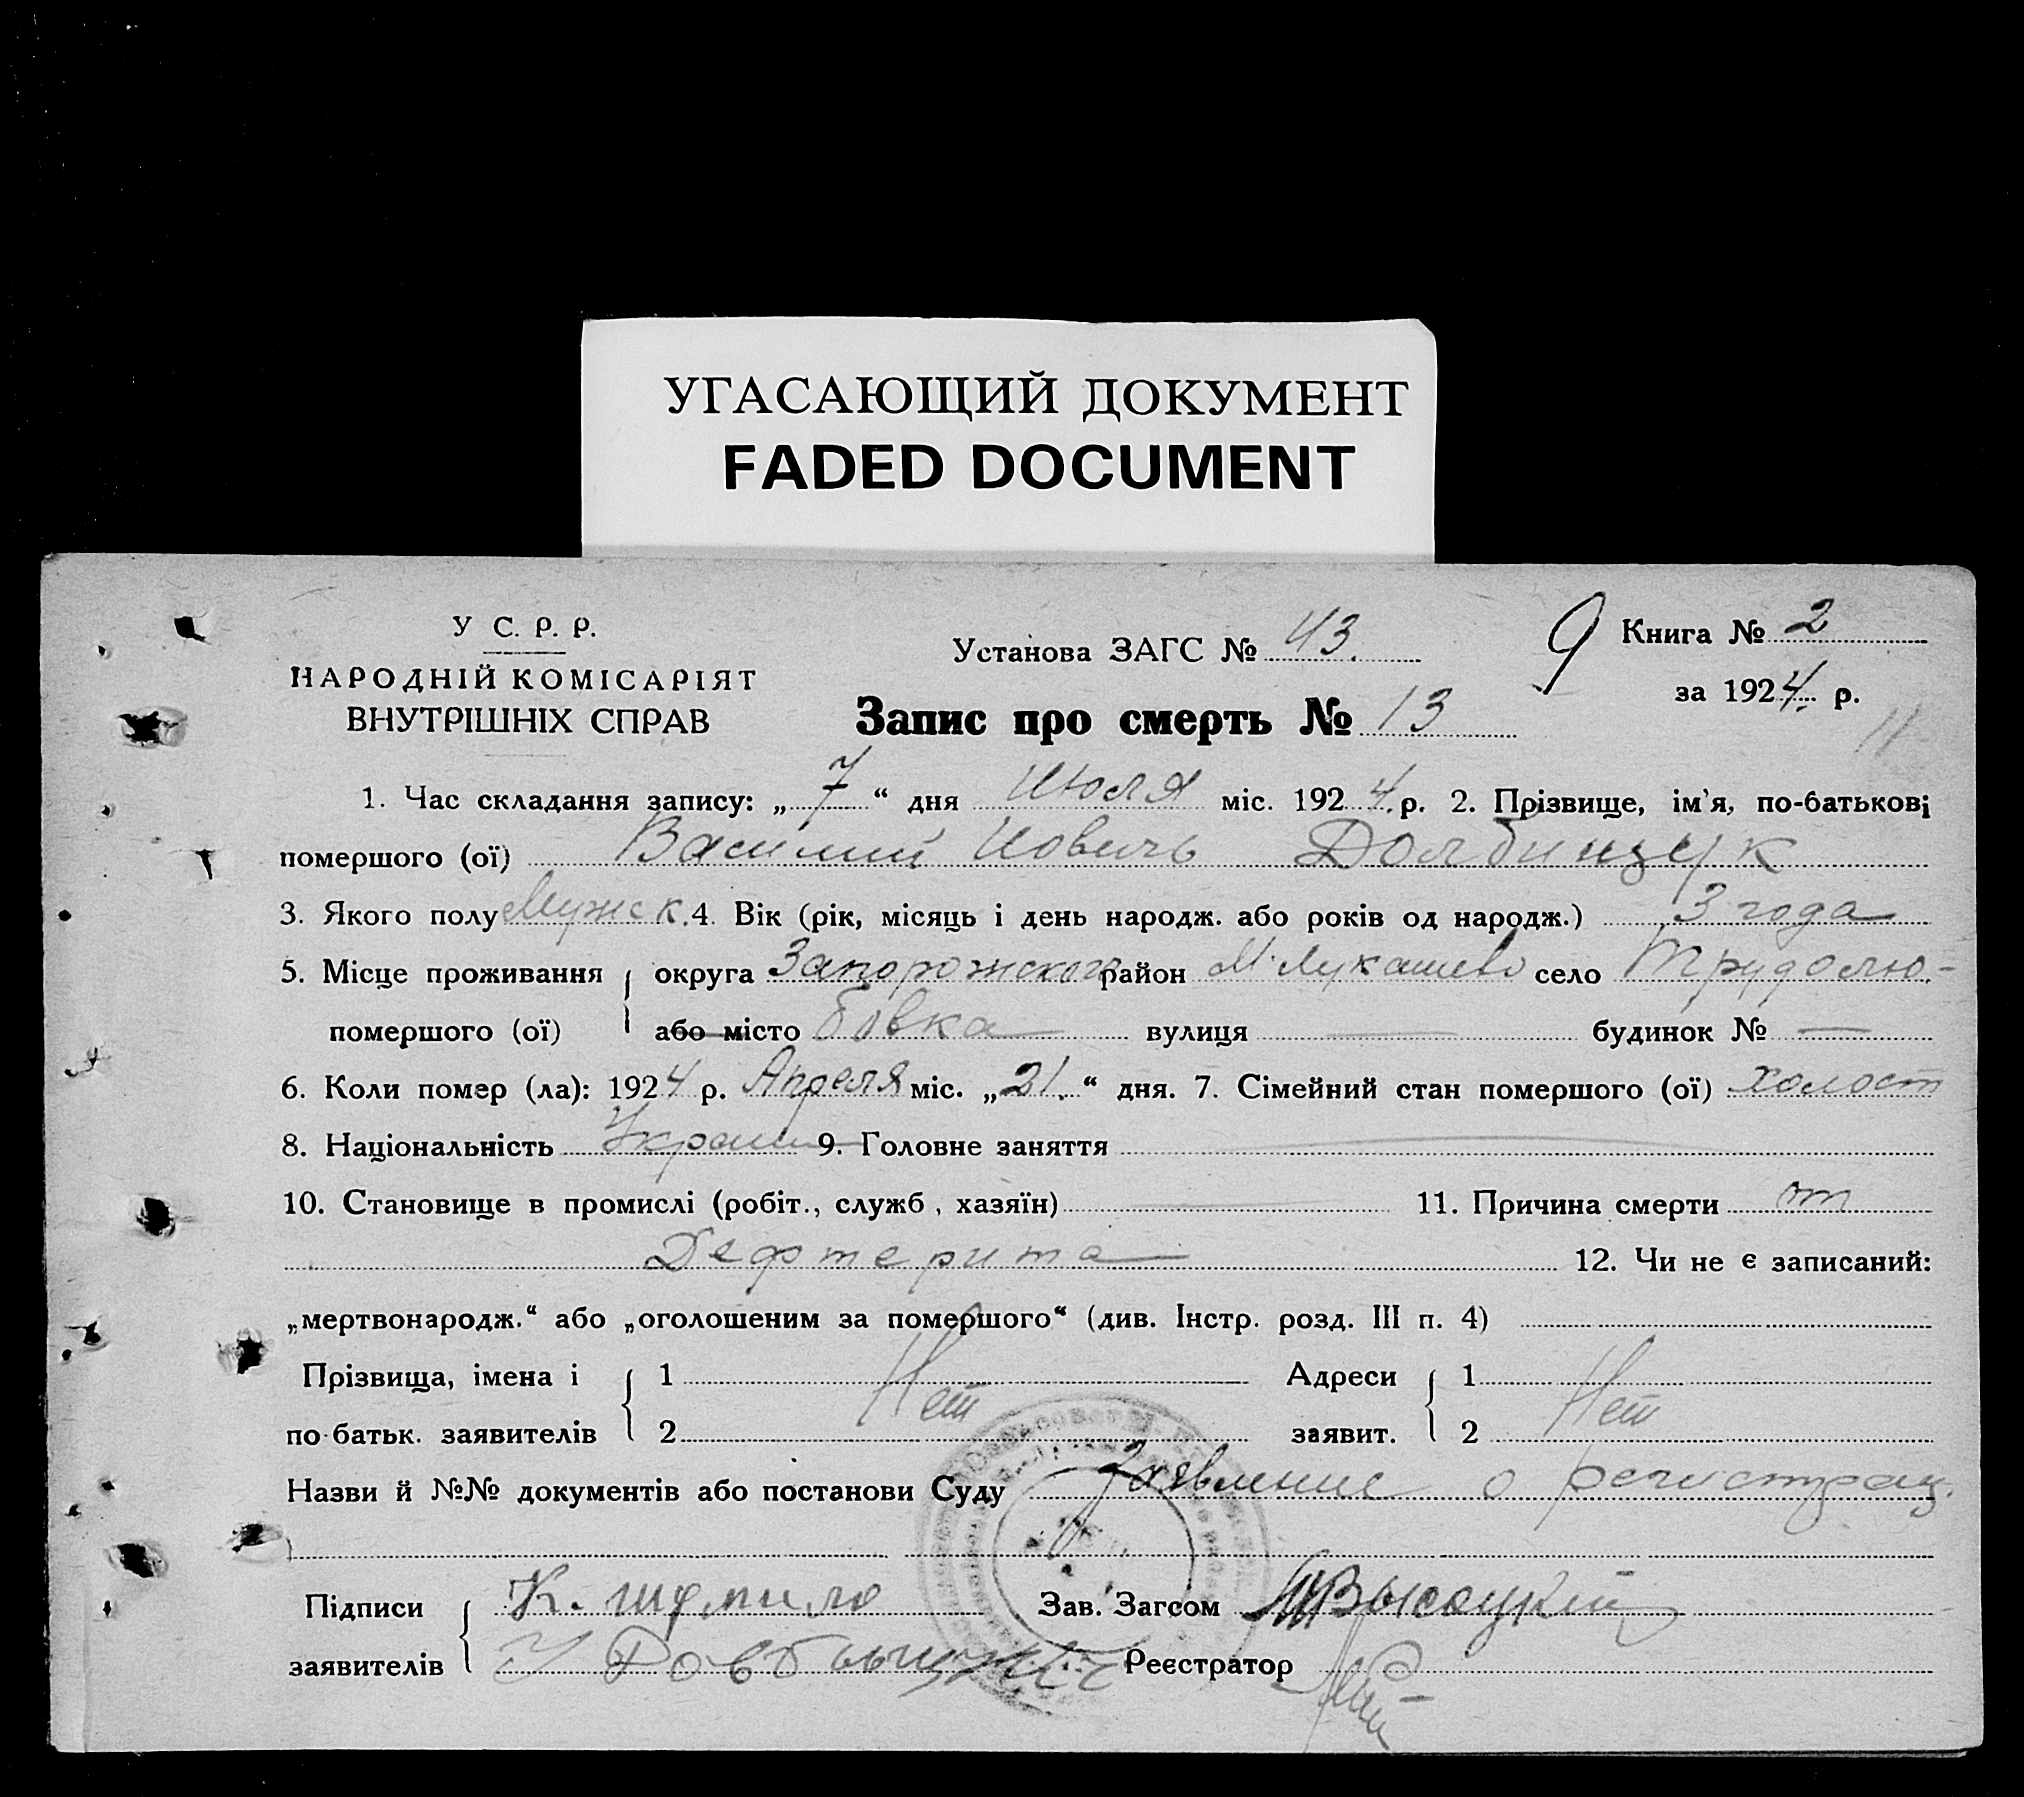 УГАСАЮЩИЙ ДОКУМЕНТ
FADED DOCUMENT
У С. Р. Р.
НАРОДНІЙ КОМІСАРІЯТ
ВНУТРІШНІХ СПРАВ
Установа ЗАГС № 43.
9
Книга № 2
за 1924 р.
11
Запис про смерть № 13
1. Час складання запису: „ 7 “ дня Июля міс. 1924. р. 2. Прізвище, ім'я, по-батькові
помершого (ої) Василий Иовичь Долбинцук
3. Якого полу Мужск. 4. Вік (рік, місяць і день народж. або років од народж.) 3 года
5. Місце проживання округа Запорожского район М. Лукашево село Трудолю-
помершого (ої) або місто бовка вулиця — будинок № —
6. Коли помер (ла): 1924 р. Апреля міс. „21.“ дня. 7. Сімейний стан помершого (ої) холост
8. Національність Украин 9. Головне заняття —
10. Становище в промислі (робіт., служб, хазяїн) — 11. Причина смерти от
Дефтерита 12. Чи не є записаний:
„мертвонародж.“ або „оголошеним за помершого“ (див. Інстр. розд. III п. 4)
Прізвища, імена і 1 Адреси 1
Нет Нет
по-батьк. заявителів 2 заявит. 2
Назви й №№ документів або постанови Суду Заявление о регистрац.
Підписи К. Шумило Зав. Загсом Высоцкий
заявителів Реєстратор